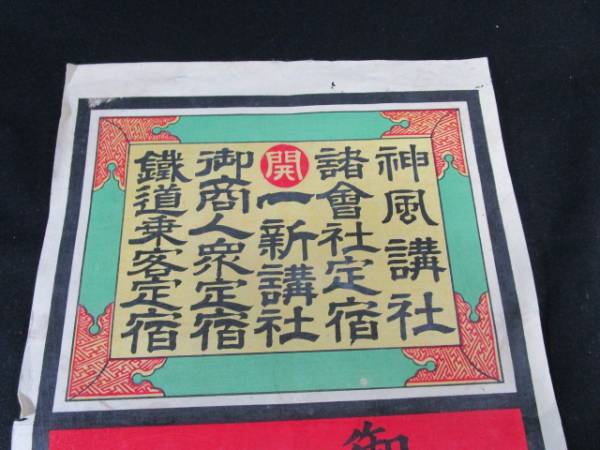 神風講社
諸會社定宿
開 一新講社
御商人衆定宿
鐵道乗客定宿
御